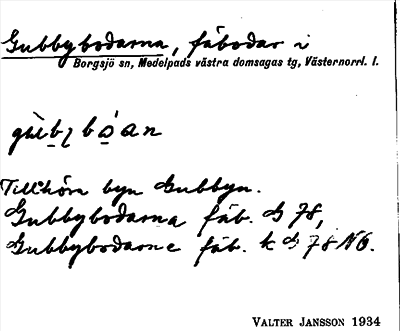 Gubbybodarna, fäbodar i
Borgsjö sn, Medelpads västra domsagas tg, Västernorrl. l.
Tillhöra byn Gubbyn.
Gubbybodarna fäb. G 78,
Gubbybodarne fäb. k G 78 NÖ.
VALTER JANSSON 1934